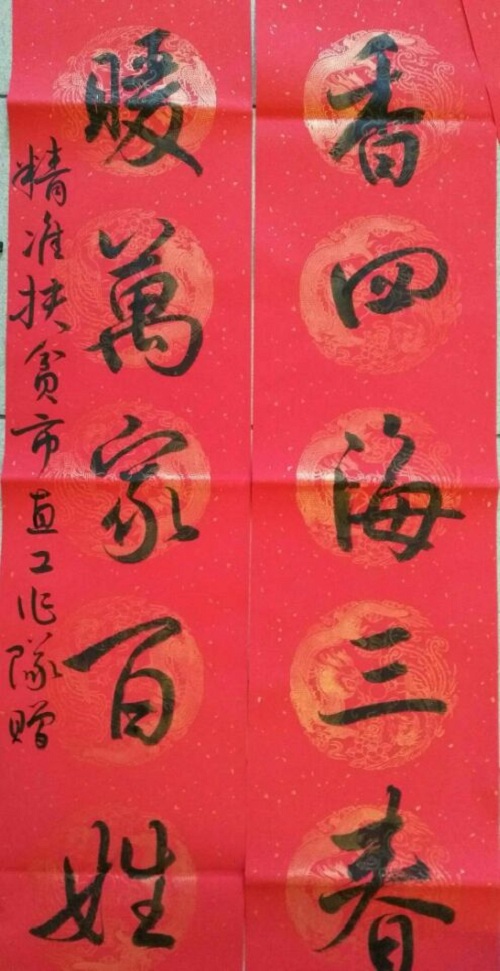 香四海三春
暖萬家百姓
精准扶贫市直工作隊赠